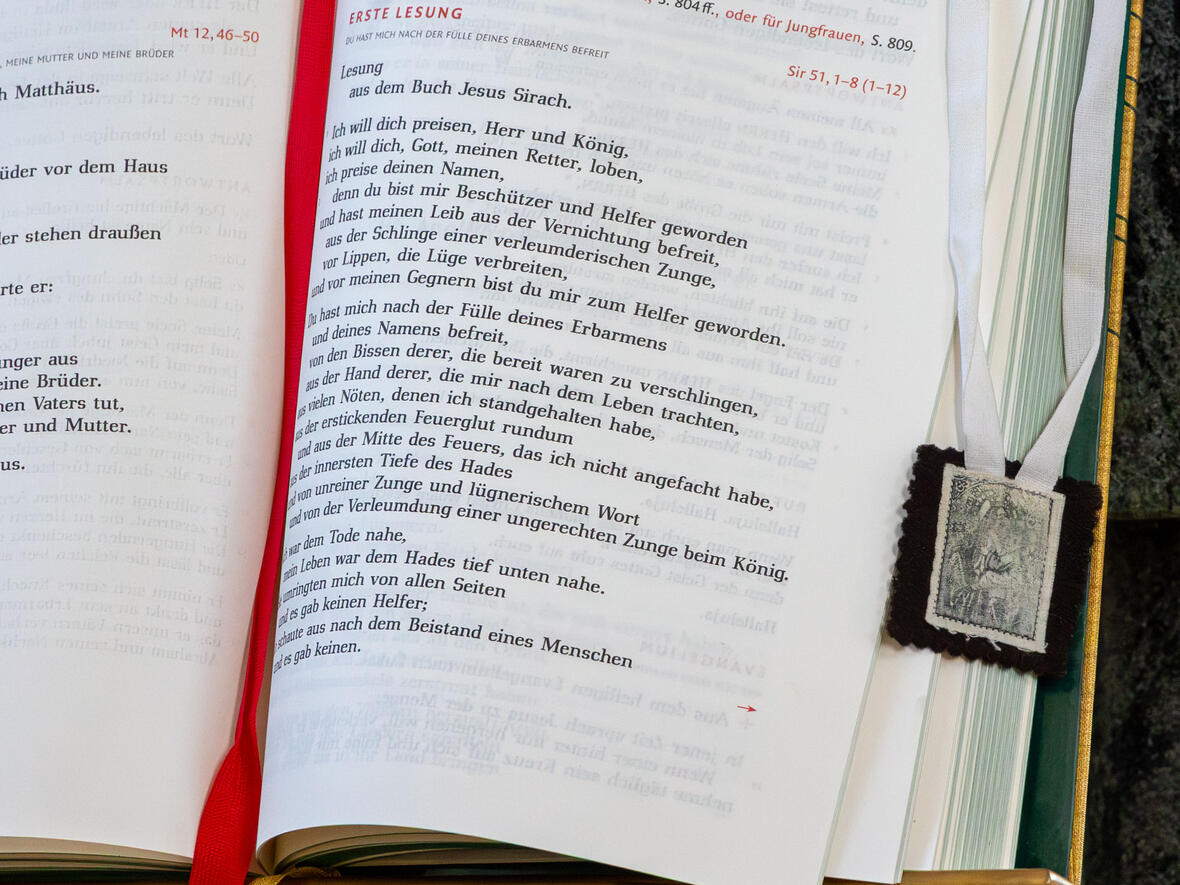 Mt 12, 46–50
, MEINE MUTTER UND MEINE BRÜDER
h Matthäus.
üder vor dem Haus
er stehen draußen
rte er:
nger aus
eine Brüder.
en Vaters tut,
er und Mutter.
us.
S. 804 ff., oder für Jungfrauen, S. 809.
ERSTE LESUNG
DU HAST MICH NACH DER FÜLLE DEINES ERBARMENS BEFREIT
Sir 51, 1–8 (1–12)
Lesung
aus dem Buch Jesus Sirach.
Ich will dich preisen, Herr und König,
ich will dich, Gott, meinen Retter, loben,
ich preise deinen Namen,
denn du bist mir Beschützer und Helfer geworden
und hast meinen Leib aus der Vernichtung befreit,
aus der Schlinge einer verleumderischen Zunge,
vor Lippen, die Lüge verbreiten,
und vor meinen Gegnern bist du mir zum Helfer geworden.
Du hast mich nach der Fülle deines Erbarmens
und deines Namens befreit,
von den Bissen derer, die bereit waren zu verschlingen,
aus der Hand derer, die mir nach dem Leben trachten,
us vielen Nöten, denen ich standgehalten habe,
us der erstickenden Feuerglut rundum
und aus der Mitte des Feuers, das ich nicht angefacht habe,
us der innersten Tiefe des Hades
und von unreiner Zunge und lügnerischem Wort
und von der Verleumdung einer ungerechten Zunge beim König.
war dem Tode nahe,
mein Leben war dem Hades tief unten nahe.
umringten mich von allen Seiten
und es gab keinen Helfer;
schaute aus nach dem Beistand eines Menschen
nd es gab keinen.
→